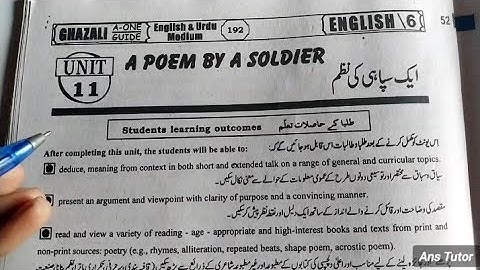 GHAZALI A-ONE GUIDE English & Urdu Medium 192 ENGLISH \6 52
UNIT 11 A POEM BY A SOLDIER ایک سپاہی کی نظم
Students learning outcomes طلبا کے حاصلات تعلم
After completing this unit, the students will be able to: اس یونٹ کو مکمل کرنے کے بعد طلبا و طالبات اس قابل ہو جائیں گے کہ:
deduce, meaning from context in both short and extended talk on a range of general and curricular topics.
سیاق و سباق سے مختصر اور توسیعی دونوں طرح کے عمومی معلومات کے حوالے سے معنی نکال سکیں۔
present an argument and viewpoint with clarity of purpose and a convincing manner.
مقصد کی وضاحت اور قائل کرنے والے انداز کے ساتھ ایک دلیل اور نقطہ نظر پیش کر سکیں۔
read and view a variety of reading - age - appropriate and high-interest books and texts from print and
non-print sources: poetry (e.g., rhymes, alliteration, repeated beats, shape poem, acrostic poem).
Ans Tutor